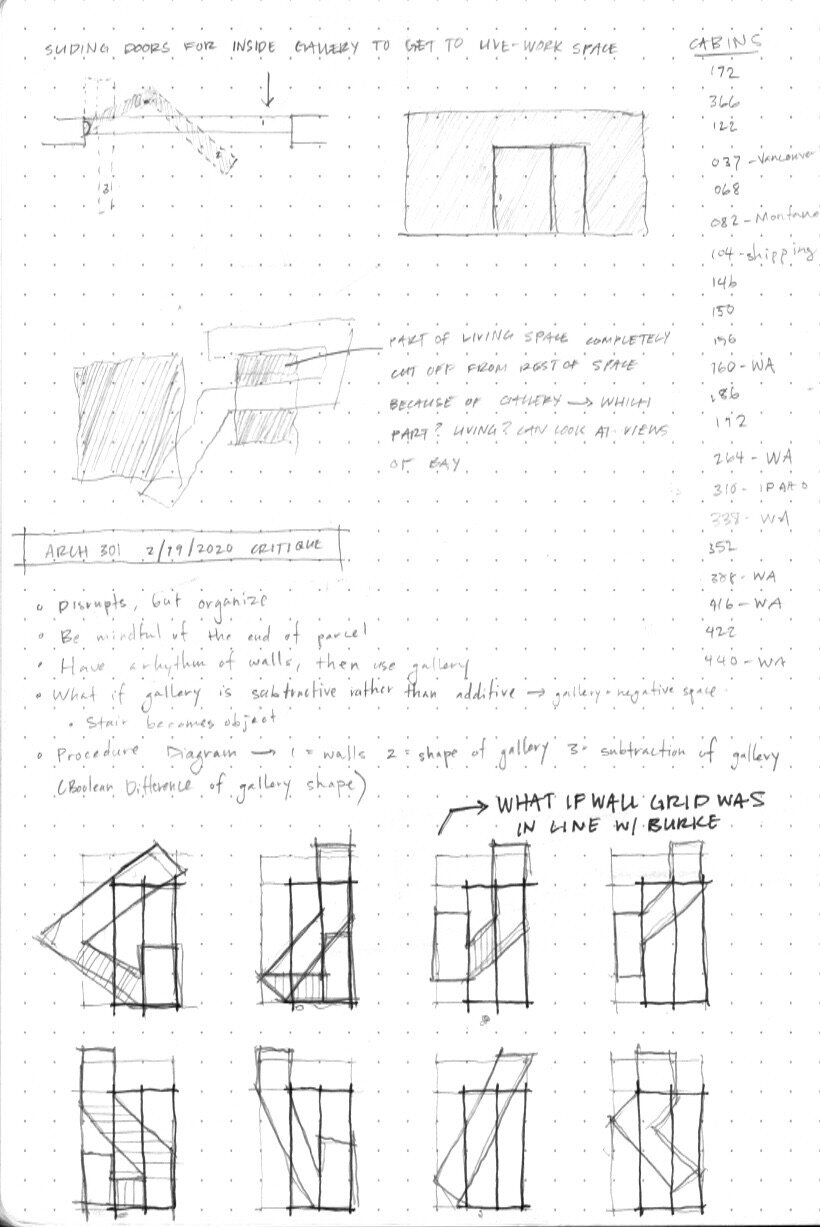 SLIDING DOORS FOR INSIDE GALLERY TO GET TO LIVE-WORK SPACE
CABINS
172
366
122
037 - Vancouver
068
082 - Montana
104 - shipping
146
150
156
160 - WA
186
192
264 - WA
310 - IDAHO
338 - WA
352
388 - WA
416 - WA
422
440 - WA
1
2
3
PART OF LIVING SPACE COMPLETELY
CUT OFF FROM REST OF SPACE
BECAUSE OF GALLERY → WHICH
PART? LIVING? CAN LOOK AT VIEWS
OF BAY
ARCH 301 2/19/2020 CRITIQUE
Disrupts, but organize
Be mindful of the end of parcel
Have a rhythm of walls, then use gallery
What if gallery is subtractive rather than additive → gallery = negative space
Stair becomes object
Procedure Diagram → 1 = walls 2 = shape of gallery 3 = subtraction of gallery
(Boolean Difference of gallery shape)
WHAT IF WALL GRID WAS
IN LINE W/ BURKE